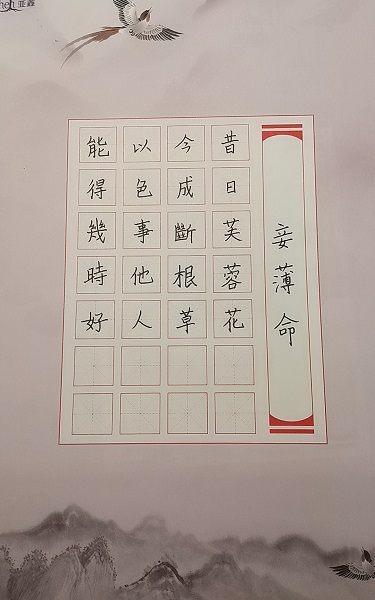 妾薄命
昔日芙蓉花
今成斷根草
以色事他人
能得幾時好
亚鑫